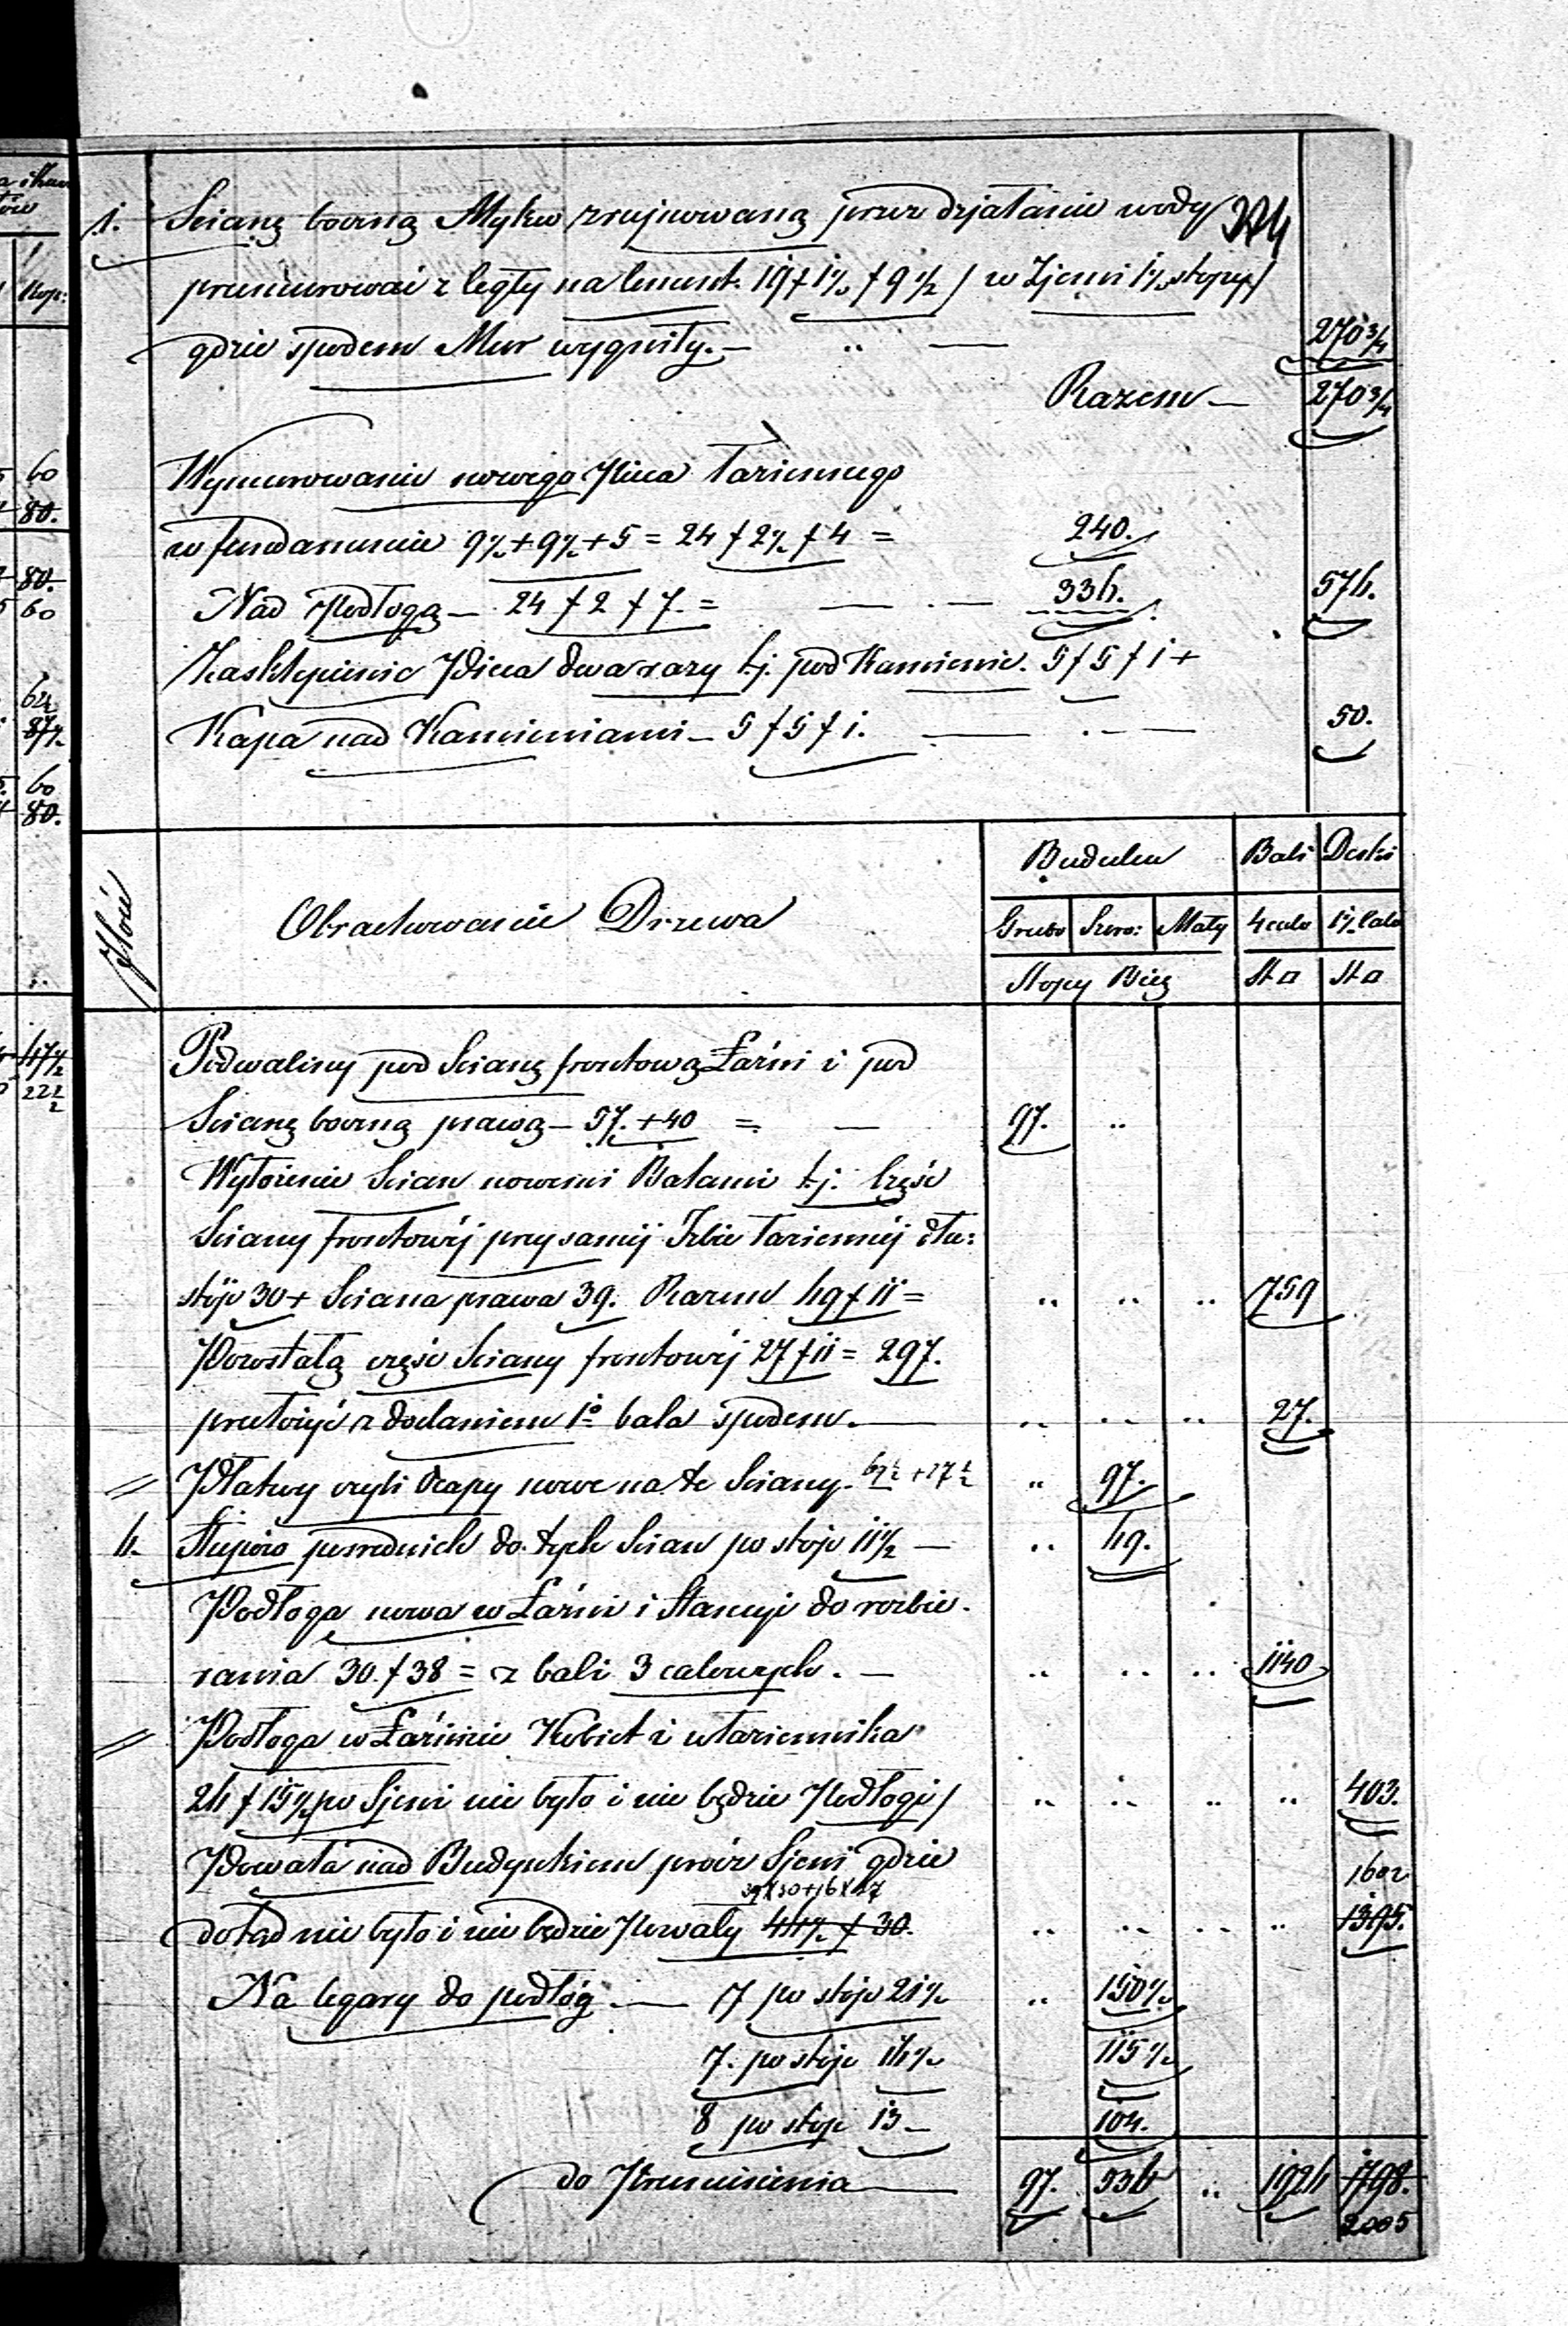 1. Scianę boczną Mykw zrujnowaną przez działanie wody 324
przemurować z cegły na cement. 19 f 1½ f 9½ / w Zjemi 1½ stopy /
gdzie spodem Mur wygniły. — „ — 270¾
Razem — 270¾
Wymurowanie nowego Pieca Łaziennego
w fundamencie 9½ + 9½ + 5 = 24 f 2½ f 4 = 240.
Nad Podłogą — 24 f 2 f 7. = — . — 336. 576.
Zasklepienie Pieca dwa razy t.j. pod Kamienie. 5 f 5 f 1 +
Kapa nad Kamieniami — 5 f 5 f 1. — . — 50.
Ilość
Obrachowanie Drzewa
Budulcu Bali Deski
Grubo Szero: Mały 4 calo 1½ calo
Stopy Bieg St □ St □
Podwaliny pod Scianę frontową Łaźni i pod
Scianę boczną prawą — 57. + 40 = — 97. „
Wyłożenie Scian nowemi Balami t.j. Część
Sciany frontowéj przy samij Izbie Łaziennéj dłu:
stóp 30 + Sciana prawa 39. Razem 69 f 11 = „ „ „ 759
Pozostałą część Sciany frontowéj 27 f 11 = 297.
przełożyć z dodaniem 1º bala spodem. — „ „ „ 27.
// Płatwy czyli Oczapy nowe na te Sciany. + 27½ „ 97.
6. Słupów pośrednich do tych Scian po stóp 11½ — „ 69.
Podłoga nowa w Łaźni i Stancyi do rozbie-
rania 30. f 38 = z bali 3 calowych. — „ „ „ 1140
// Podłoga w Łaźience Kobiet i u Łaziennika
26 f 15½ /w Sjeni nie było i nie będzie Podłogi/ „ „ „ „ 403.
Powała nad Budynkiem prócz Sjeni gdzie 1602
39 X 30 + 16 X 27
dotąd nie było i nie będzie Powały 46½ f 30. „ „ „ „ 1395.
Na legary do podłóg. — 7 po stóp 21½ „ 150½
7. po stóp 16½ 115½
8 po stóp 13 — 104.
do Przeniesienia — 97. 536 „ 1926 1798.
2005
60
80.
80.
60
62½
87½
60
80.
47½
22½
Kop: